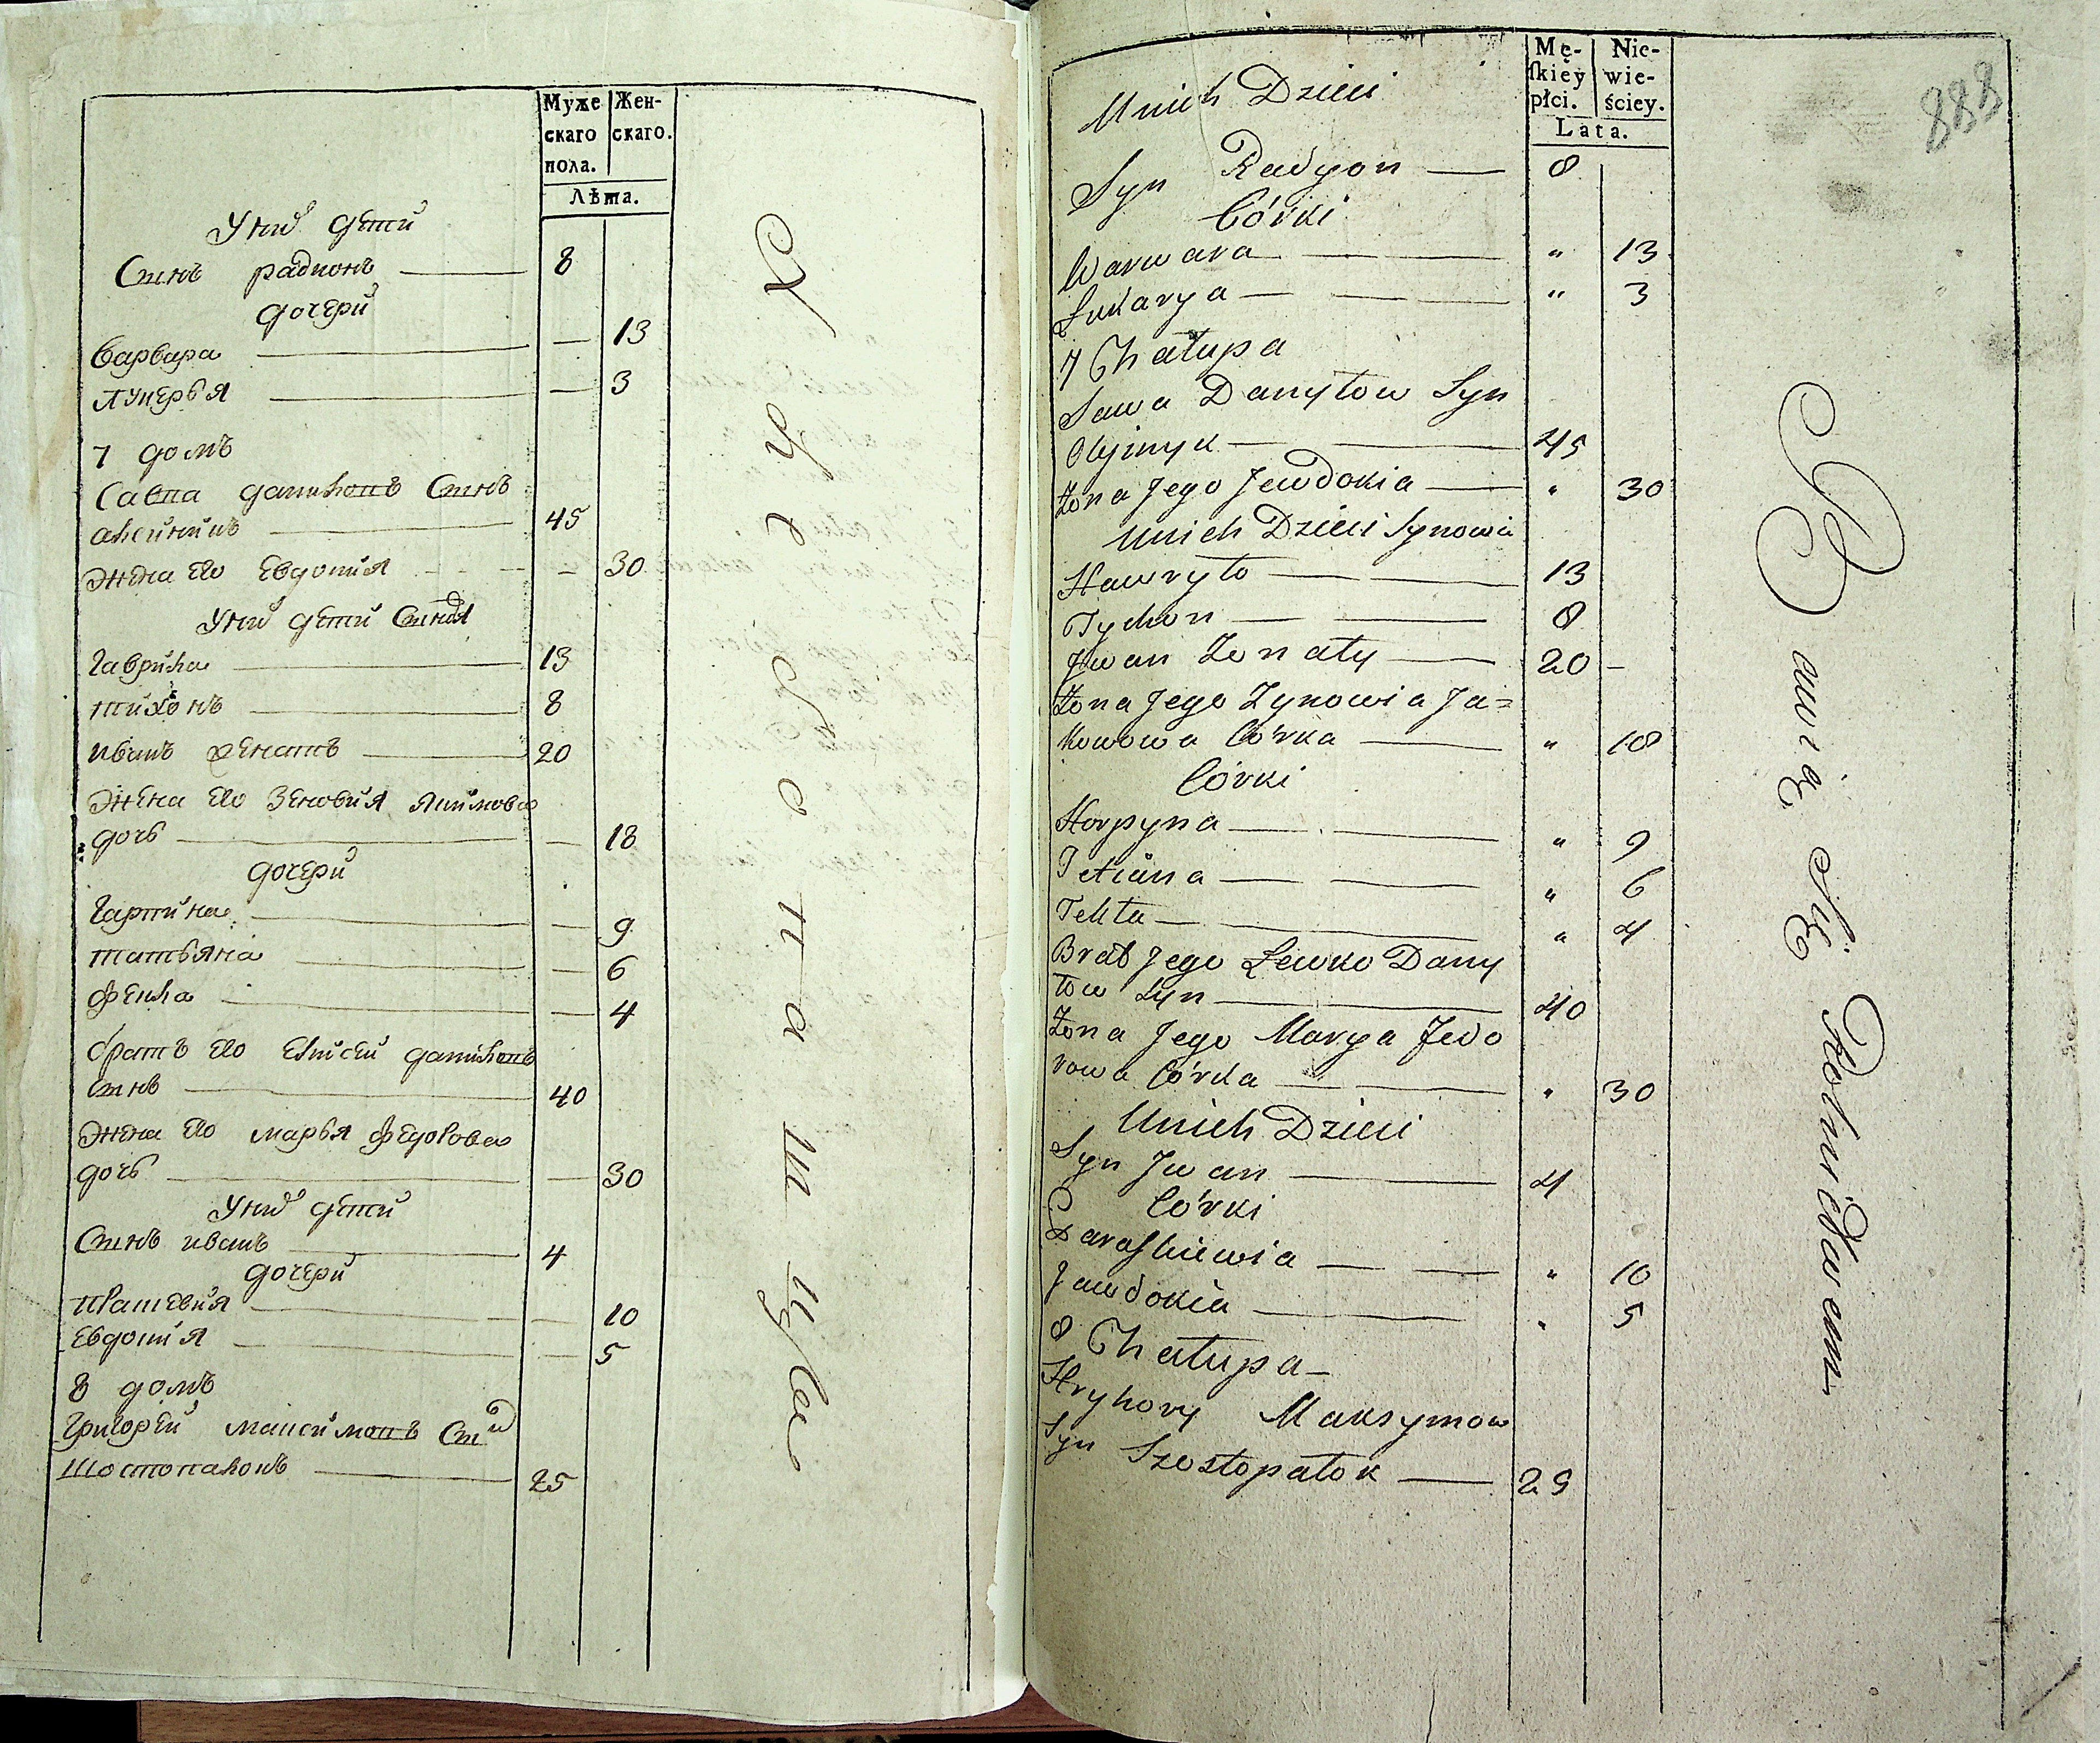 Муже
скаго
пола.
Жен-
скаго.
Лѣта.
У них дети
Сынъ радионъ 8
дочери
Варвара — 13
лукерья — 3
7 домъ
Савва даниловъ Сынъ
олейникъ 45
жена его Евдокия — 30
У них дети Сыновя
Гаврила 13
тихонъ 8
иванъ женатъ 20
жена его Зеновия якимова
дочь — 18
дочери
Гарпина — 9
татьяна — 6
фекла — 4
братъ его Елисей даниловъ
сынъ 40
жена его марья федорова
дочь — 30
У них дети
Сынъ иванъ 4
дочери
Евдокия — 5
8 домъ
Григорей максимовъ Сынъ
Шостопаловъ 25
Хлебопашцы
Mę-
skiey
płci.
Nie-
wie-
ściey.
Lata.
888
Unich Dzieci
Syn Radyon — 8
Córki
Warwara — " 13
Łukarya — " 3
7 Chałupa
Sawa Danyłow Syn
Olyinyk — 45
Żona Jego Jewdokia — " 30
Unich Dzieci Synowie
Hawryło — 13
Tychon — 8
Jwan Żonaty — 20 –
Żona Jego Zynowia Ja=
kowowa Córka — " 18
Córki
Horpyna — " 9
Tetiana — " 6
Tekla — " 4
Brat Jego Lewko Dany
łow Syn — 40
Żona Jego Marya Fedo
rowa Córka — " 30
Unich Dzieci
Syn Jwan — 4
Córki
Paraskiewia — " 10
Jawdokia — " 5
8 Chałupa –
Hryhory Maksymow
Syn Szostopałok — 25
Bawię Się Rolnictwem